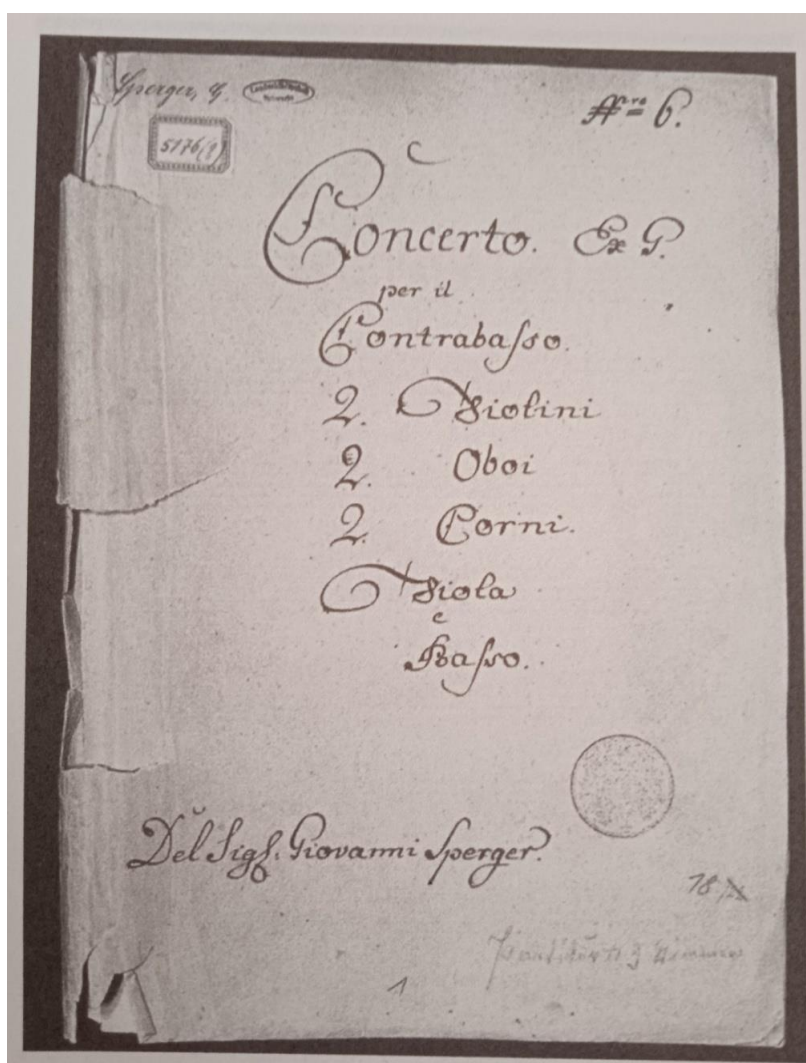 Sperger, J.
5176(9)
Nro 6.
Concerto. Ex G.
per il
Contrabasso.
2. Violini
2. Oboi
2. Corni.
Viola
e
Basso.
Del Sigf: Giovanni Sperger.
18
1